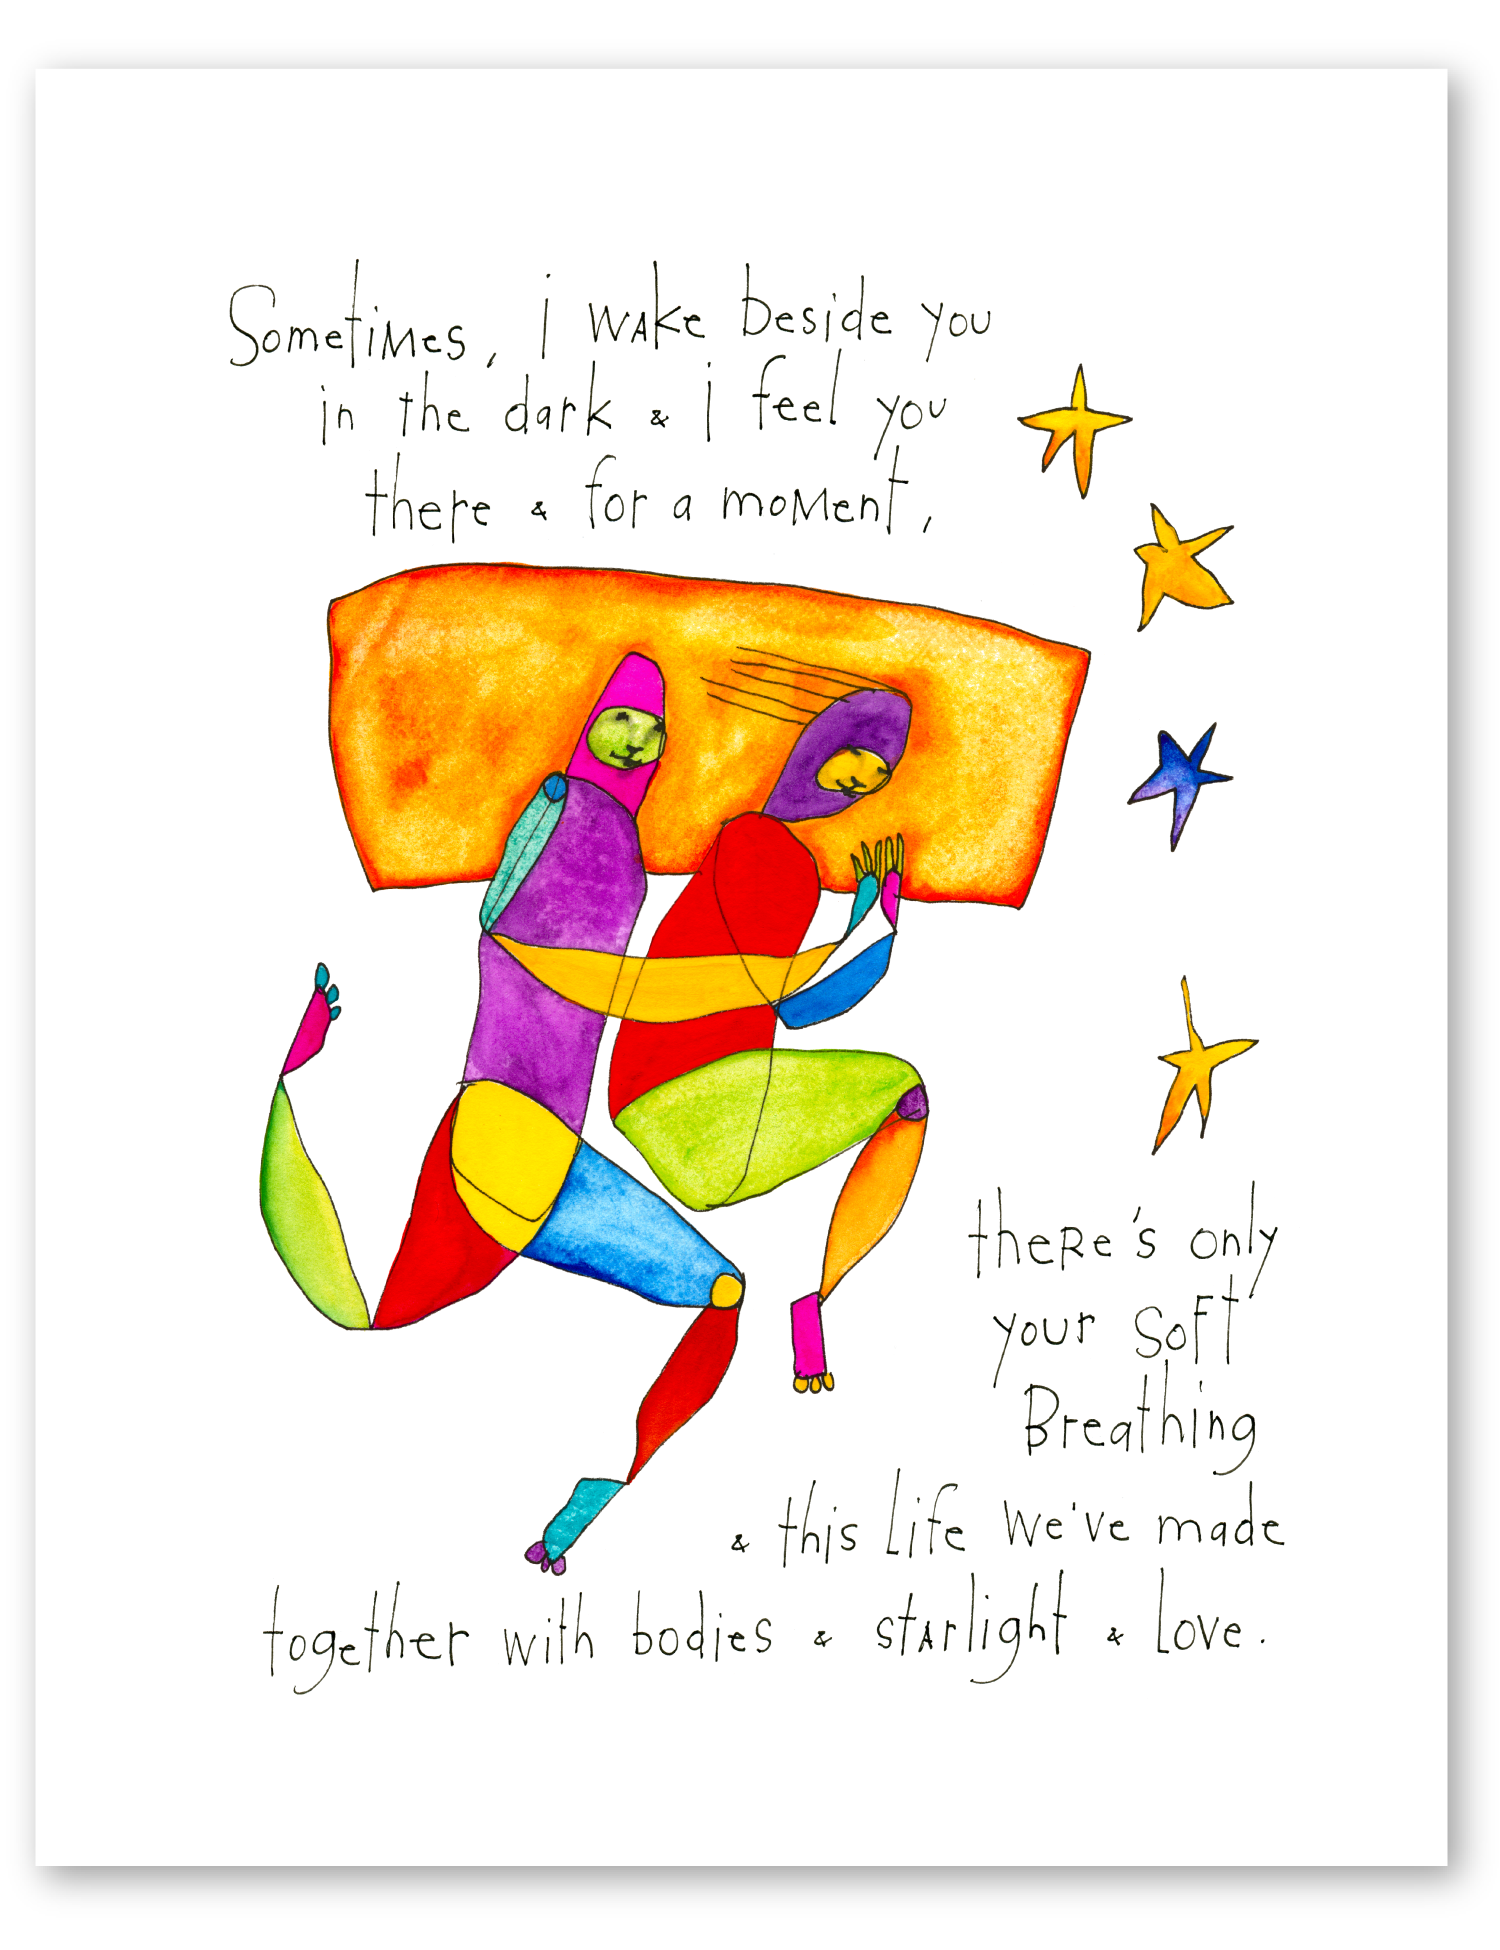 Sometimes, i wake beside you
in the dark & i feel you
there & for a moment,
there's only
your soft
Breathing
& this life we've made
together with bodies & starlight & love.